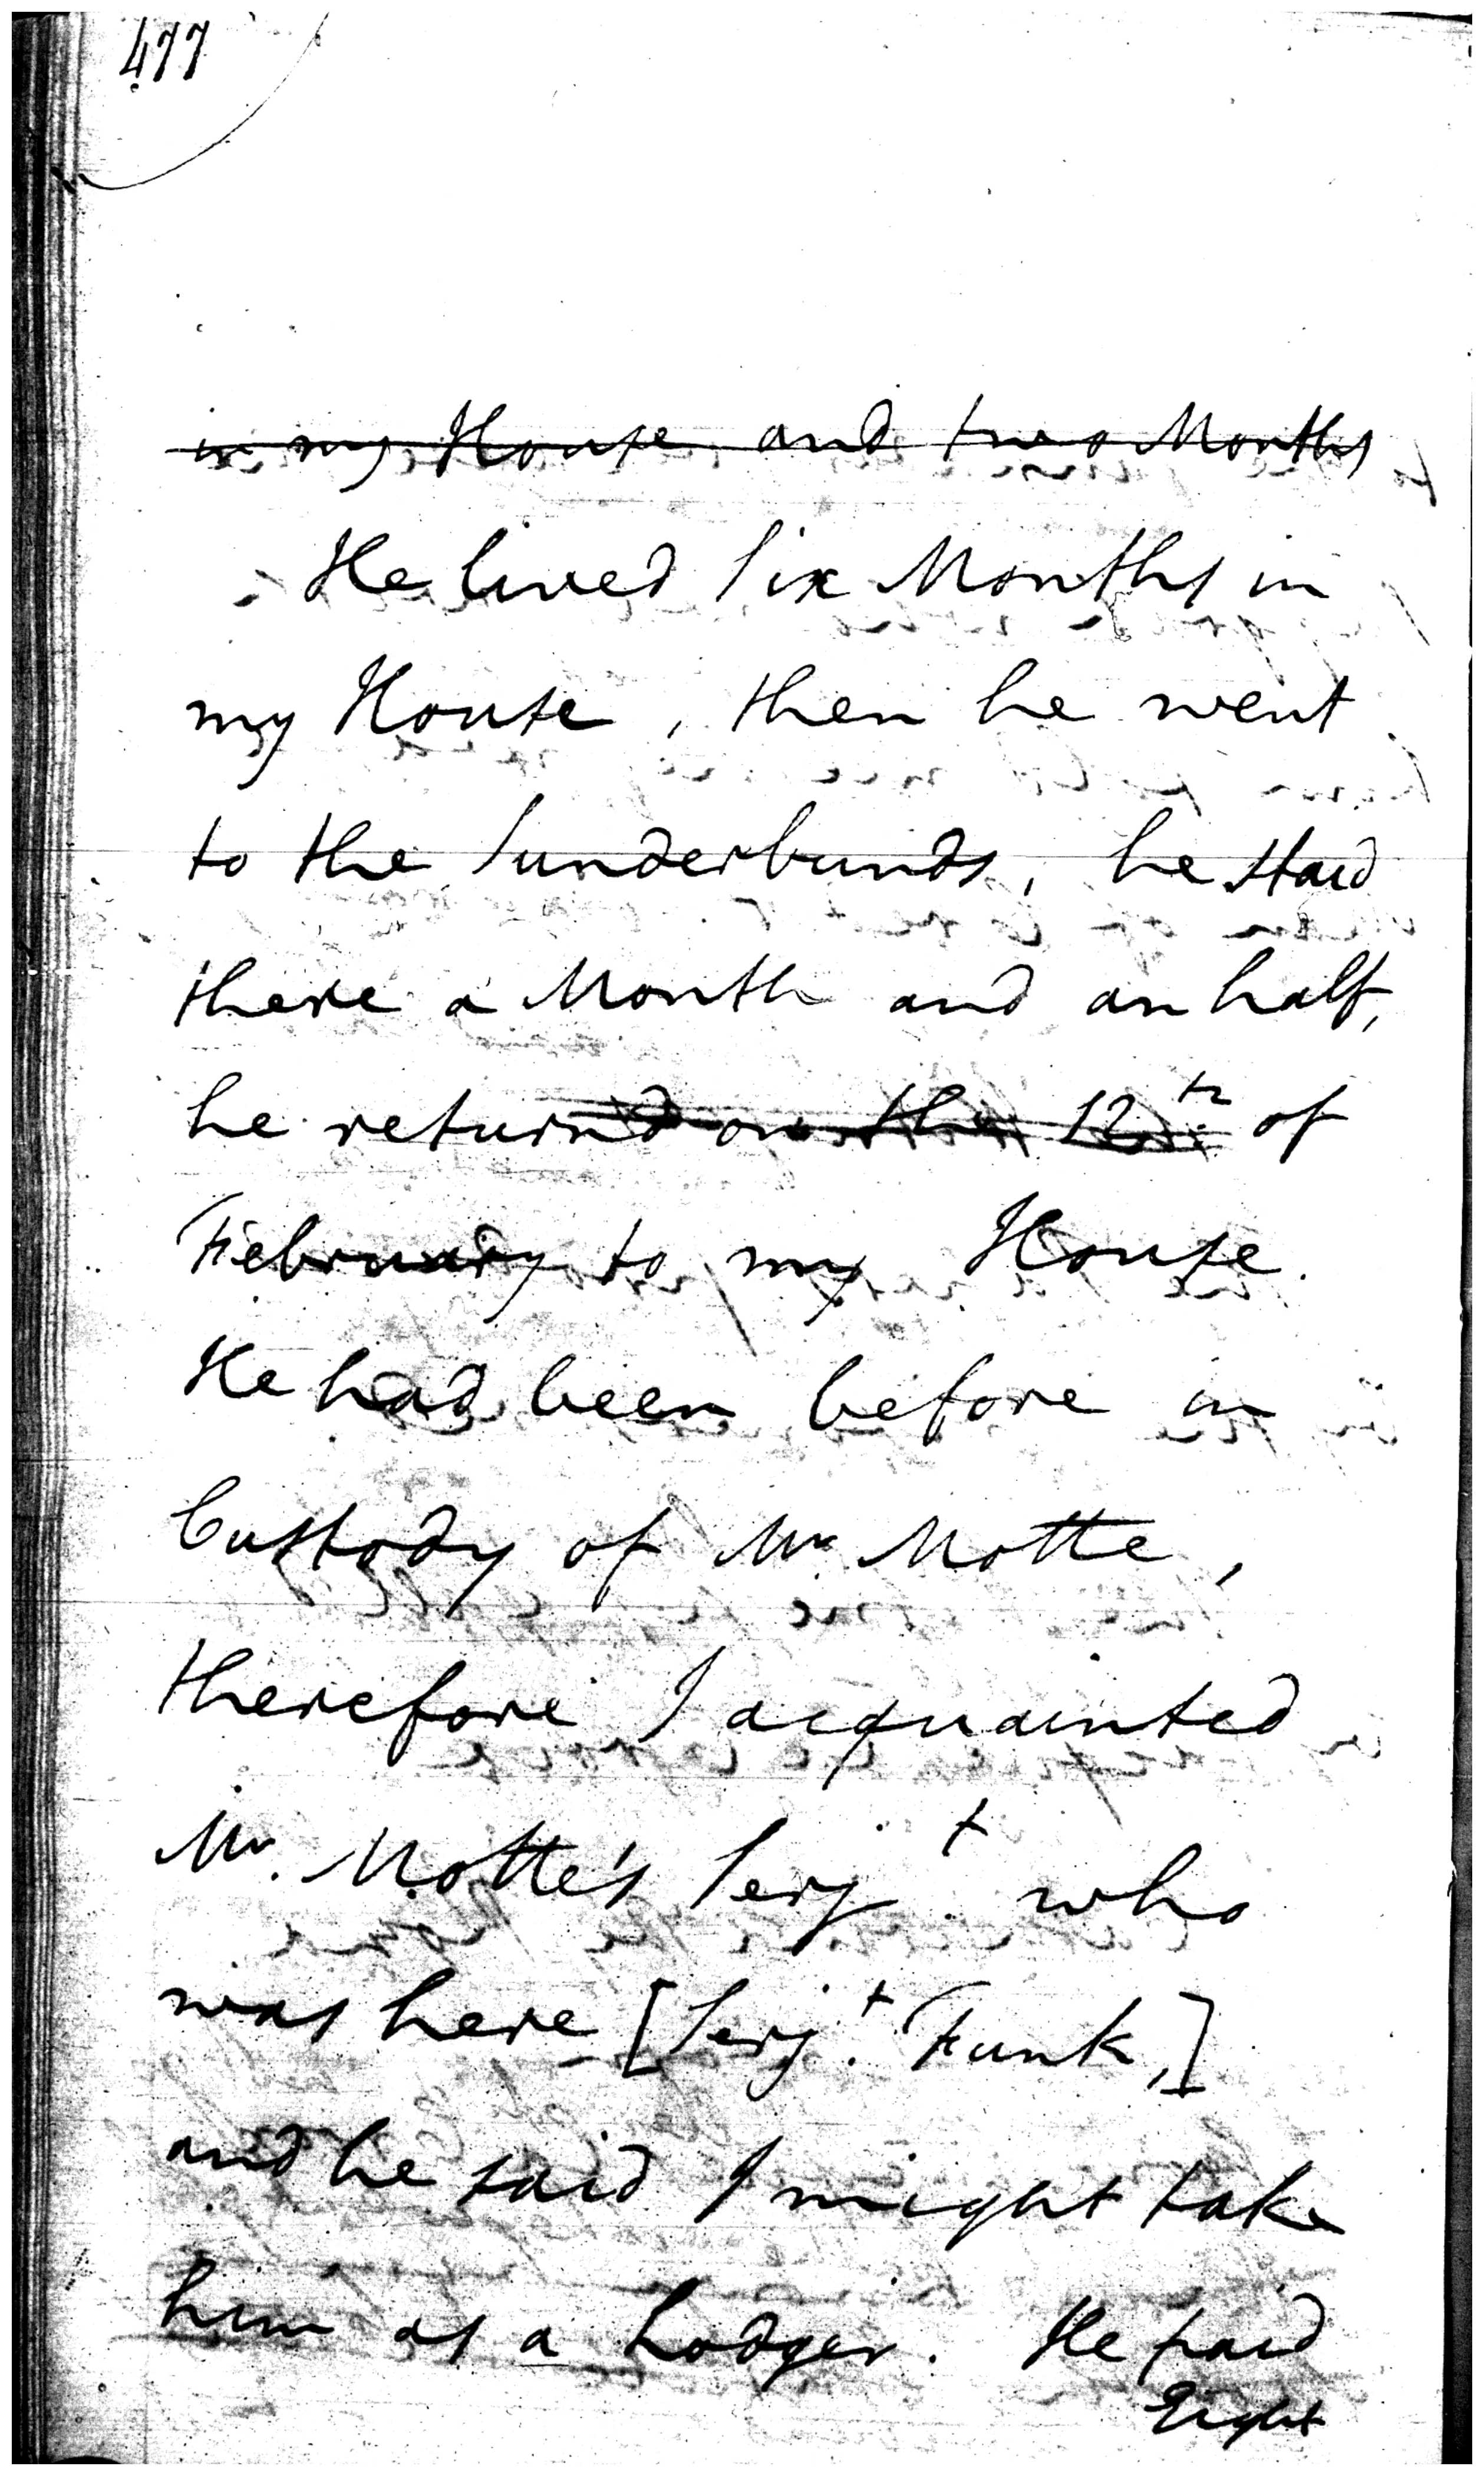 477
in my House and two Months
He lived Six Months in
my House, then he went
to the Sunderbunds, he staid
there a Month and an half,
he return'd on the 12th of
February to my House.
He had been before in
Custody of Mr. Motte,
therefore I acquainted
Mr. Motte's Serjt. who
was here [Serjt. Funk,]
and he said I might take
him as a Lodger. He paid
Eight